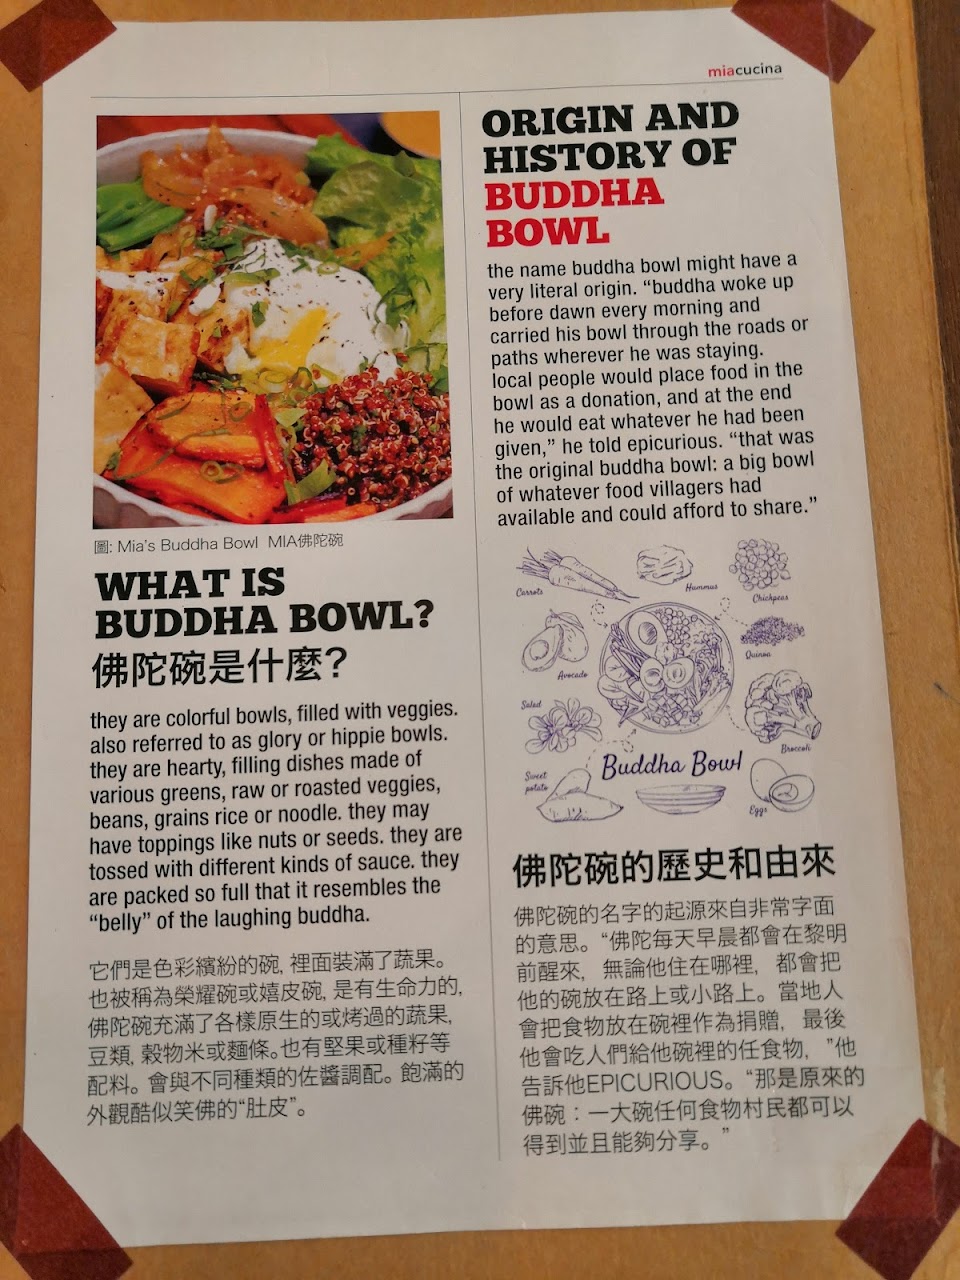 miacucina
圖: Mia's Buddha Bowl MIA佛陀碗
WHAT IS
BUDDHA BOWL?
佛陀碗是什麼?
they are colorful bowls, filled with veggies.
also referred to as glory or hippie bowls.
they are hearty, filling dishes made of
various greens, raw or roasted veggies,
beans, grains rice or noodle. they may
have toppings like nuts or seeds. they are
tossed with different kinds of sauce. they
are packed so full that it resembles the
“belly” of the laughing buddha.
它們是色彩繽紛的碗, 裡面裝滿了蔬果。
也被稱為榮耀碗或嬉皮碗, 是有生命力的,
佛陀碗充滿了各樣原生的或烤過的蔬果,
豆類, 穀物米或麵條。也有堅果或種籽等
配料。會與不同種類的佐醬調配。飽滿的
外觀酷似笑佛的“肚皮”。
ORIGIN AND
HISTORY OF
BUDDHA
BOWL
the name buddha bowl might have a
very literal origin. “buddha woke up
before dawn every morning and
carried his bowl through the roads or
paths wherever he was staying.
local people would place food in the
bowl as a donation, and at the end
he would eat whatever he had been
given,” he told epicurious. “that was
the original buddha bowl: a big bowl
of whatever food villagers had
available and could afford to share.”
Carrots
Hummus
Chickpeas
Quinoa
Avocado
Salad
Broccoli
Sweet
potato
Buddha Bowl
Eggs
佛陀碗的歷史和由來
佛陀碗的名字的起源來自非常字面
的意思。“佛陀每天早晨都會在黎明
前醒來, 無論他住在哪裡, 都會把
他的碗放在路上或小路上。當地人
會把食物放在碗裡作為捐贈, 最後
他會吃人們給他碗裡的任食物, ”他
告訴他EPICURIOUS。“那是原來的
佛碗：一大碗任何食物村民都可以
得到並且能夠分享。”